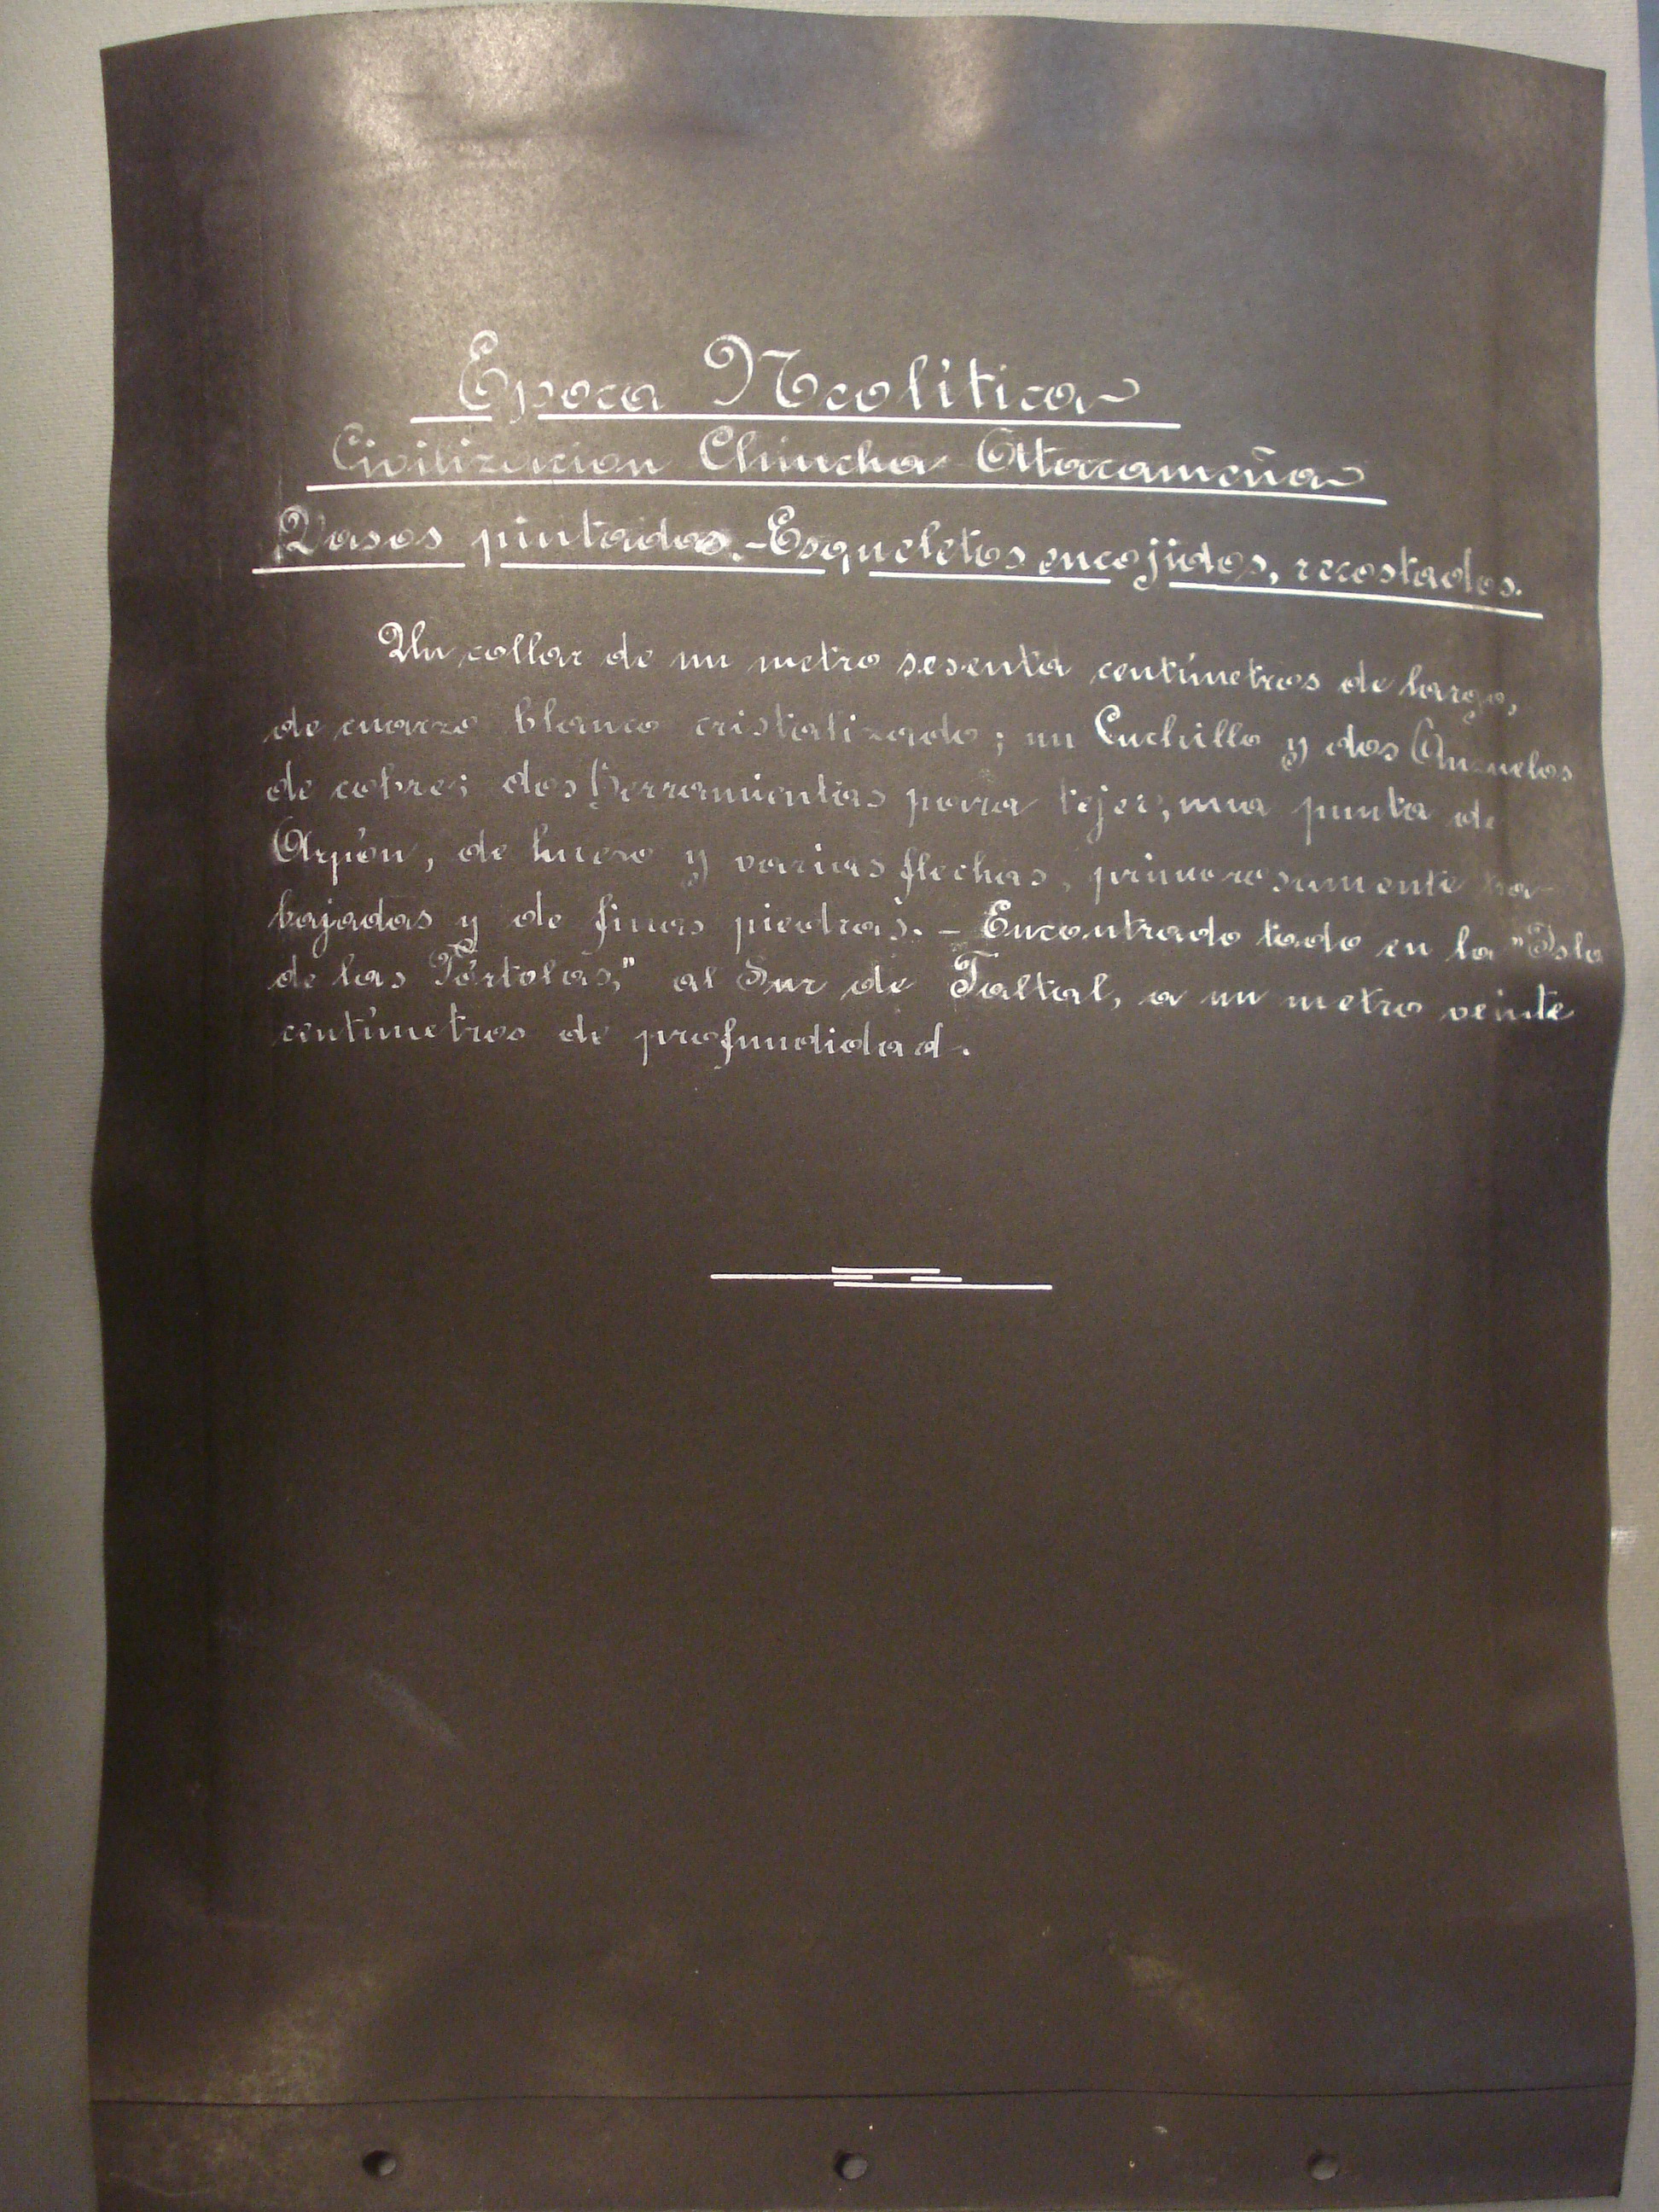 Epoca Neolítica
Civilizacion Chincha Attacameña
Vasos pintados.-Esqueletos encojidos, recostados.
Un collar de un metro sesenta centímetros de largo,
de cuarzo blanco cristalizado; un Cuchillo y dos Anzuelos
de cobre; dos Herramientas para tejer, una punta de
Arpón, de hueso y varias flechas, primorosamente tra-
bajadas y de finas piedras. - Encontrado todo en la "Isla
de las Tórtolas," al Sur de Taltal, a un metro veinte
centímetros de profundidad.